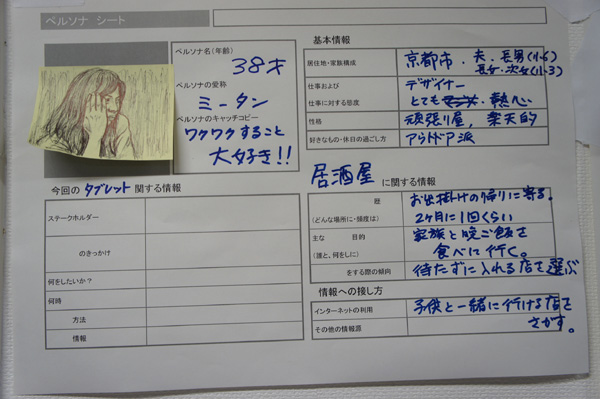 ペルソナ シート
ペルソナ名(年齢)
38才
ペルソナの愛称
ミータン
ペルソナのキャッチコピー
ワクワクすること
大好き!!
基本情報
居住地・家族構成
京都市・夫、長男(小6)
長女・次女(小3)
仕事および
仕事に対する態度
デザイナー
とても 熱心
性格
頑張り屋、楽天的
好きなもの・休日の過ごし方
アウトドア派
今回の タブレット 関する情報
ステークホルダー
のきっかけ
何をしたいか?
何時
方法
情報
居酒屋 に関する情報
歴
(どんな場所に・頻度は)
お出掛けの帰りに寄る。
2ヶ月に1回くらい
主な 目的
(誰と、何をしに)
家族と晩ご飯を
食べに行く。
をする際の傾向
待たずに入れる店を選ぶ
情報への接し方
インターネットの利用
子供と一緒に行ける店を
さがす。
その他の情報源